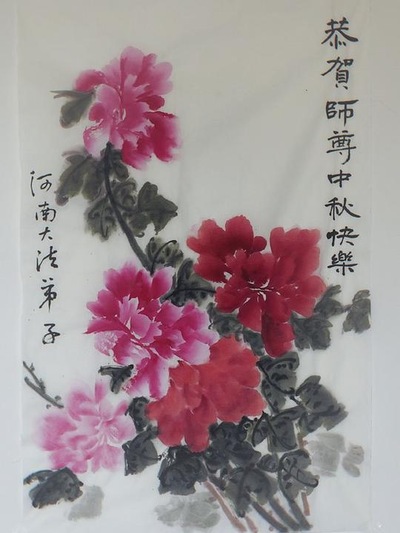 恭賀師尊中秋快樂
河南大法弟子